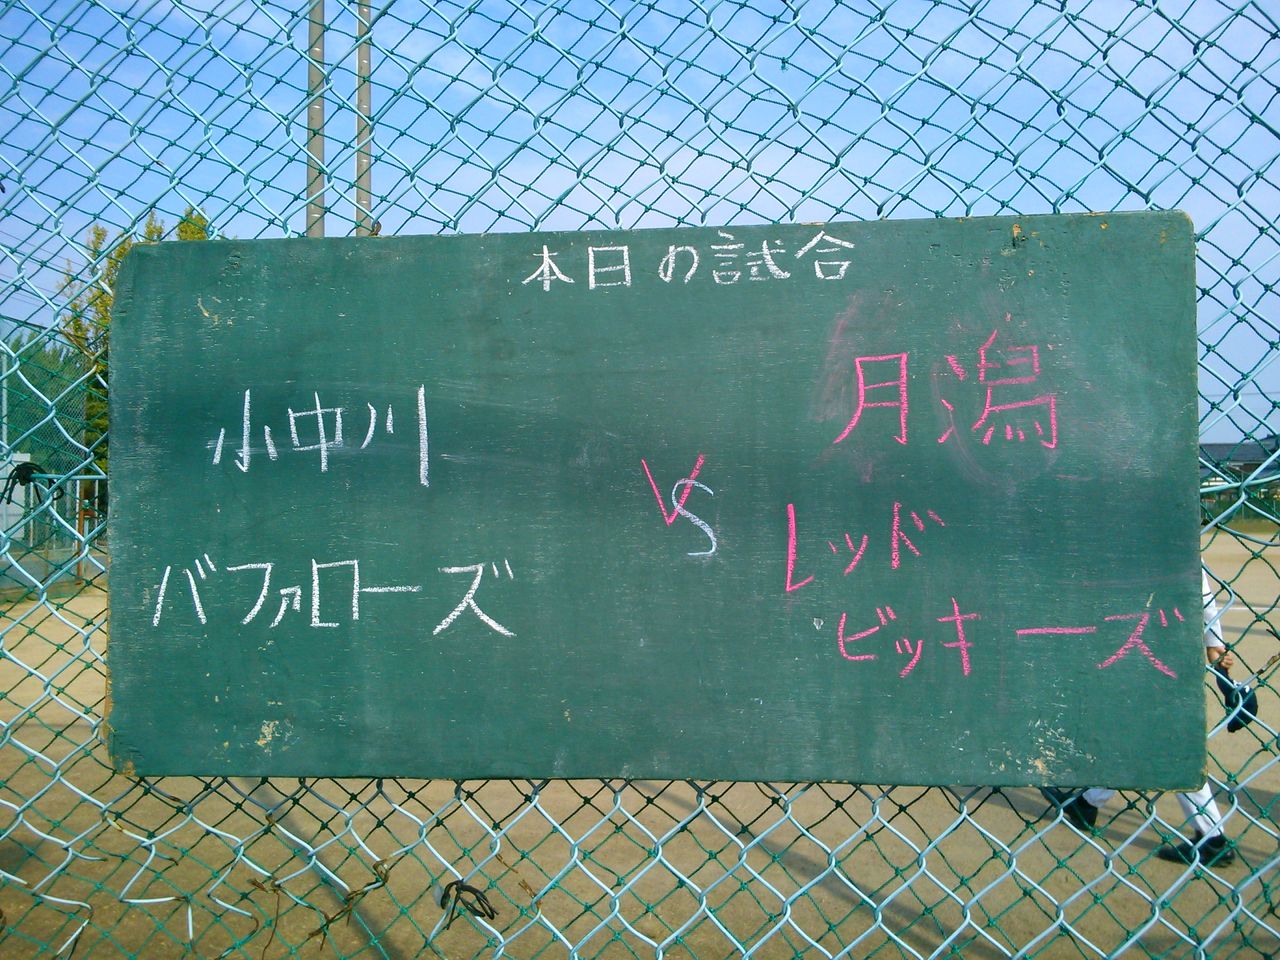 本日の試合
小中川
バファローズ
VS
月潟
レッド
ビッキーズ